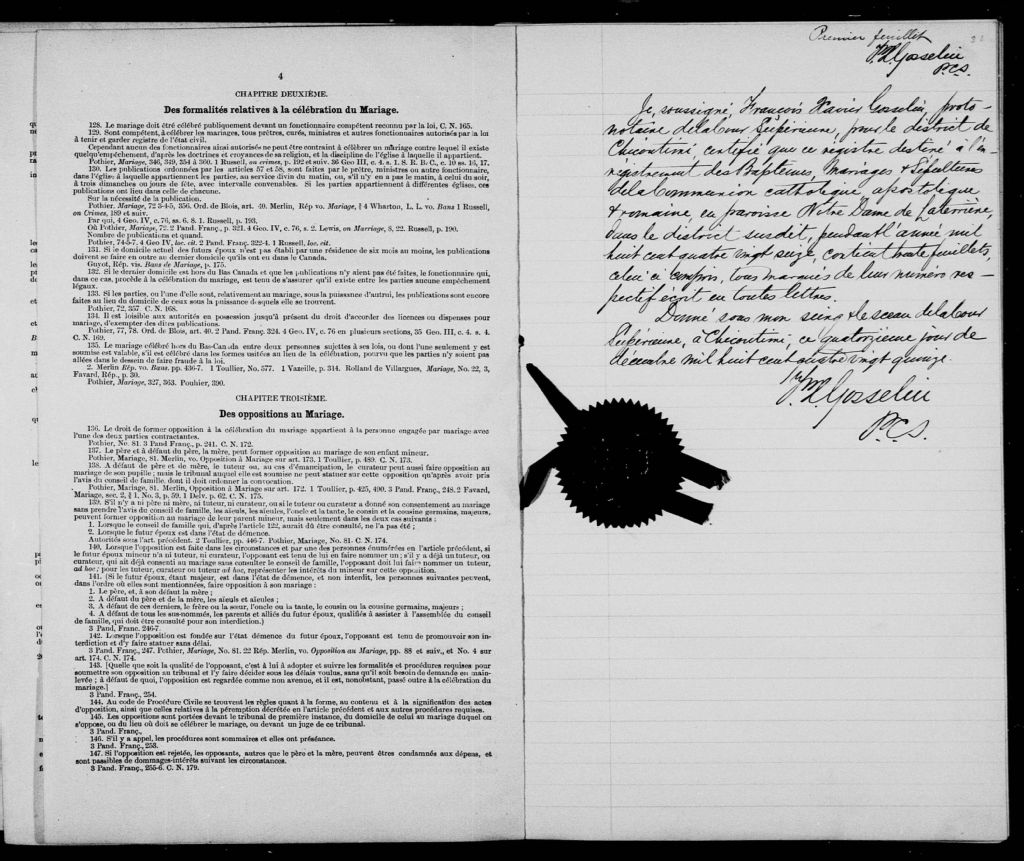 4
CHAPITRE DEUXIÈME.
Des formalités relatives à la célébration du Mariage.
128. Le mariage doit être célébré publiquement devant un fonctionnaire compétent reconnu par la loi, C. N. 165.
129. Sont compétents, à célébrer les mariages, tous prêtres, curés, ministres et autres fonctionnaires autorisés par la loi
à tenir et garder registre de l'état civil.
Cependant aucun des fonctionnaires ainsi autorisés ne peut être contraint à célébrer un mariage contre lequel il existe
quelqu'empêchement, d'après les doctrines et croyances de sa religion, et la discipline de l'église à laquelle il appartient.
Pothier, Mariage, 346, 349, 354 à 360. 1 Russell, on crimes, p. 192 et suiv. 36 Geo III, c. 4. s. 1. S. R. B. C., c. 10 ss. 16, 17,
130. Les publications ordonnées par les articles 57 et 58, sont faites par le prêtre, ministres ou autre fonctionnaire,
dans l'église à laquelle appartiennent les parties, au service divin du matin, ou, s'il n'y en a pas le matin, à celui du soir,
à trois dimanches ou jours de fête, avec intervalle convenables. Si les parties appartiennent à différentes églises, ces
publications ont lieu dans celle de chacune.
Sur la nécessité de la publication.
Pothier. Mariage, 72 3-4-5, 356. Ord. de Blois, art. 40. Merlin, Rép vo. Mariage, § 4 Wharton, L. L. vo. Bans 1 Russell,
on Crimes, 189 et suiv.
Par qui, 4 Geo. IV, c. 76, ss. 6. 8. 1. Russell, p. 193.
Où Pothier, Mariage, 72. 2 Pand. Franç., p. 321. 4 Geo. IV, c. 76, s. 2. Lewis, on Marriage, 8, 22. Russell, p. 190.
Nombre de publications et quand.
Pothier, 74-5-7. 4 Geo IV, loc. cit. 2 Pand. Franç. 322-4. 1 Russell, loc. cit.
131. Si le domicile actuel des futurs époux n'est pas établi par une résidence de six mois au moins, les publications
doivent se faire en outre au dernier domicile qu'ils ont eu dans le Canada.
Guyot, Rép. vis. Bans de Mariage, p. 175.
132. Si le dernier domicile est hors du Bas Canada et que les publications n'y aient pas été faites, le fonctionnaire qui,
dans ce cas, procède à la célébration du mariage, est tenu de s'assurer qu'il existe entre les parties aucune empêchement
légaux.
133. Si les parties, ou l'une d'elle sont, relativement au mariage, sous la puissance d'autrui, les publications sont encore
faites au lieu du domicile de ceux sous la puissance desquels elle se trouvent.
Pothier, 72, 357. C. N. 168.
134. Il est loisible aux autorités en possession jusqu'à présent du droit d'accorder des licences ou dispenses pour
mariage, d'exempter des dites publications.
Pothier, 77, 78. Ord. de Blois, art. 40. 2 Pand Franç. 324. 4 Geo. IV, c. 76 en plusieurs sections, 35 Geo. III, c. 4. s. 4.
C. N. 169.
135. Le mariage célébré hors du Bas-Canada entre deux personnes sujettes à ses lois, ou dont l'une seulement y est
soumise est valable, s'il est célébré dans les formes usitées au lieu de la célébration, pourvu que les parties n'y soient pas
allées dans le dessein de faire fraude à la loi.
2. Merlin Rép. vo. Bans. pp. 436-7. 1 Toullier, No. 577. 1 Vazeille, p. 314. Rolland de Villargues, Mariage, No. 22, 3,
Favard, Rép., p. 30.
Pothier, Mariage, 327, 363. Pouhier, 390.
CHAPITRE TROISIÈME.
Des oppositions au Mariage.
136. Le droit de former opposition à la célébration du mariage appartient à la personne engagée par mariage avec
l'une des deux parties contractantes.
Pothier, No. 81. 3 Pand Franç., p. 241. C. N. 172.
137. Le père et à défaut du père, la mère, peut former opposition au mariage de son enfant mineur.
Pothier, Mariage, 81. Merlin, vo. Opposition à Mariage sur art. 173. 1 Toullier, p. 489. C. N. 173.
138. A défaut de père et de mère, le tuteur ou, au cas d'émancipation, le curateur peut aussi faire opposition au
mariage de son pupille ; mais le tribunal auquel elle est soumise ne peut statuer sur cette opposition qu'après avoir pris
l'avis du conseil de famille, dont il doit ordonner la convocation.
Pothier, Mariage, 81. Merlin, Opposition à Mariage sur art. 172. 1 Toullier, p. 425, 490. 3 Pand. Franç., 248. 2 Favard,
Mariage, sec. 2, § 1, No. 3, p. 59. 1 Delv. p. 62. C. N. 175.
139. S'il n'y a ni père ni mère, ni tuteur, ni curateur, ou si le tuteur ou curateur a donné son consentement au mariage
sans prendre l'avis du conseil de famille, les aïeuls, les aïeules, l'oncle et la tante, le cousin et la cousine germains, majeurs,
peuvent former opposition au mariage de leur parent mineur, mais seulement dans les deux cas suivants :
1. Lorsque le conseil de famille qui, d'après l'article 122, aurait dû être consulté, ne l'a pas été ;
2. Lorsque le futur époux est dans l'état de démence.
Autorités sous l'art. précédent. 2 Toullier, pp. 446-7. Pothier, Mariage, No. 81. C. N. 174.
140. Lorsque l'opposition est faite dans les circonstances et par une des personnes énumérées en l'article précédent, si
le futur époux mineur n'a ni tuteur, ni curateur, l'opposant est tenu de lui en faire nommer un ; s'il y a déjà un tuteur, ou
curateur, qui ait déjà consenti au mariage sans consulter le conseil de famille, l'opposant doit lui faire nommer un tuteur,
ad hoc ; pour les tuteur, curateur ou tuteur ad hoc, représenter les intérêts du mineur sur cette opposition.
141. (Si le futur époux, étant majeur, est dans l'état de démence, et non interdit, les personnes suivantes peuvent,
dans l'ordre où elles sont mentionnées, faire opposition à son mariage :
1. Le père, et, à son défaut la mère ;
2. A défaut du père et de la mère, les aïeuls et aïeules ;
3. A défaut de ces derniers, le frère ou la sœur, l'oncle ou la tante, le cousin ou la cousine germains, majeurs ;
4. A défaut de tous les sus-nommés, les parents et alliés du futur époux, qualifiés à assister à l'assemblée du conseil
de famille, qui doit être consulté pour son interdiction.)
3 Pand. Franc. 246-7.
142. Lorsque l'opposition est fondée sur l'état démence du futur époux, l'opposant est tenu de promouvoir son in-
terdiction et d'y faire statuer sans délai.
3 Pand. Franç., 247. Pothier, Mariage, No. 81. 22 Rép. Merlin, vo. Opposition au Mariage, pp. 88 et suiv., et No. 4 sur
art. 174. C. N. 174.
143. [Quelle que soit la qualité de l'opposant, c'est à lui à adopter et suivre les formalités et procédures requises pour
soumettre son opposition au tribunal et l'y faire décider sous les délais voulus, sans qu'il soit besoin de demande en main-
levée ; à défaut de quoi, l'opposition est regardée comme non avenue, et il est, nonobstant, passé outre à la célébration du
mariage.]
3 Pand. Franç., 254.
144. Au code de Procédure Civile se trouvent les règles quant à la forme, au contenu et à la signification des actes
d'opposition, ainsi que celles relatives à la péremption décrétée en l'article précédent et aux autres procédures requises.
145. Les oppositions sont portées devant le tribunal de première instance, du domicile de celui au mariage duquel on
s'oppose, ou du lieu où doit se célébrer le mariage, ou devant un juge de ce tribunal.
3 Pand. Franç.,
146. S'il y a appel, les procédures sont sommaires et elles ont préséance.
3 Pand. Franç., 253.
147. Si l'opposition est rejetée, les opposants, autres que le père et la mère, peuvent être condamnés aux dépens, et
sont passibles de dommages-intérêts suivant les circonstances.
3 Pand. Franç., 255-6. C. N. 179.
Premier feuillet
F. X. Gosselin
P.C.S.
Je, soussigné, François Xavier Gosselin, proto-
notaire de la Cour Supérieure, pour le district de
Chicoutimi certifie que ce registre destiné à l'en-
régistrement des Baptêmes, Mariages & Sépultures
de la Communion catholique, apostolique
& romaine, en paroisse Notre Dame de Laterrière,
dans le district susdit, pendant l'année mil
huit cent quatre vingt seize, contient trente feuillets,
celui ci compris, tous marqués de leur numéro res-
pectif écrit en toutes lettres.
Donné sous mon seing & le sceau de la Cour
Supérieure, à Chicoutimi, ce quatorzième jour de
décembre mil huit cent quatre vingt quinze.
F. X. Gosselin
P.C.S.